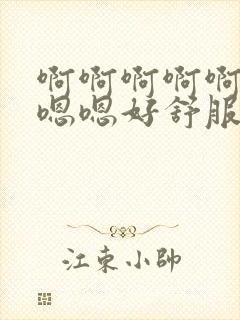 啊啊啊啊啊
嗯嗯好舒服
江东小帅